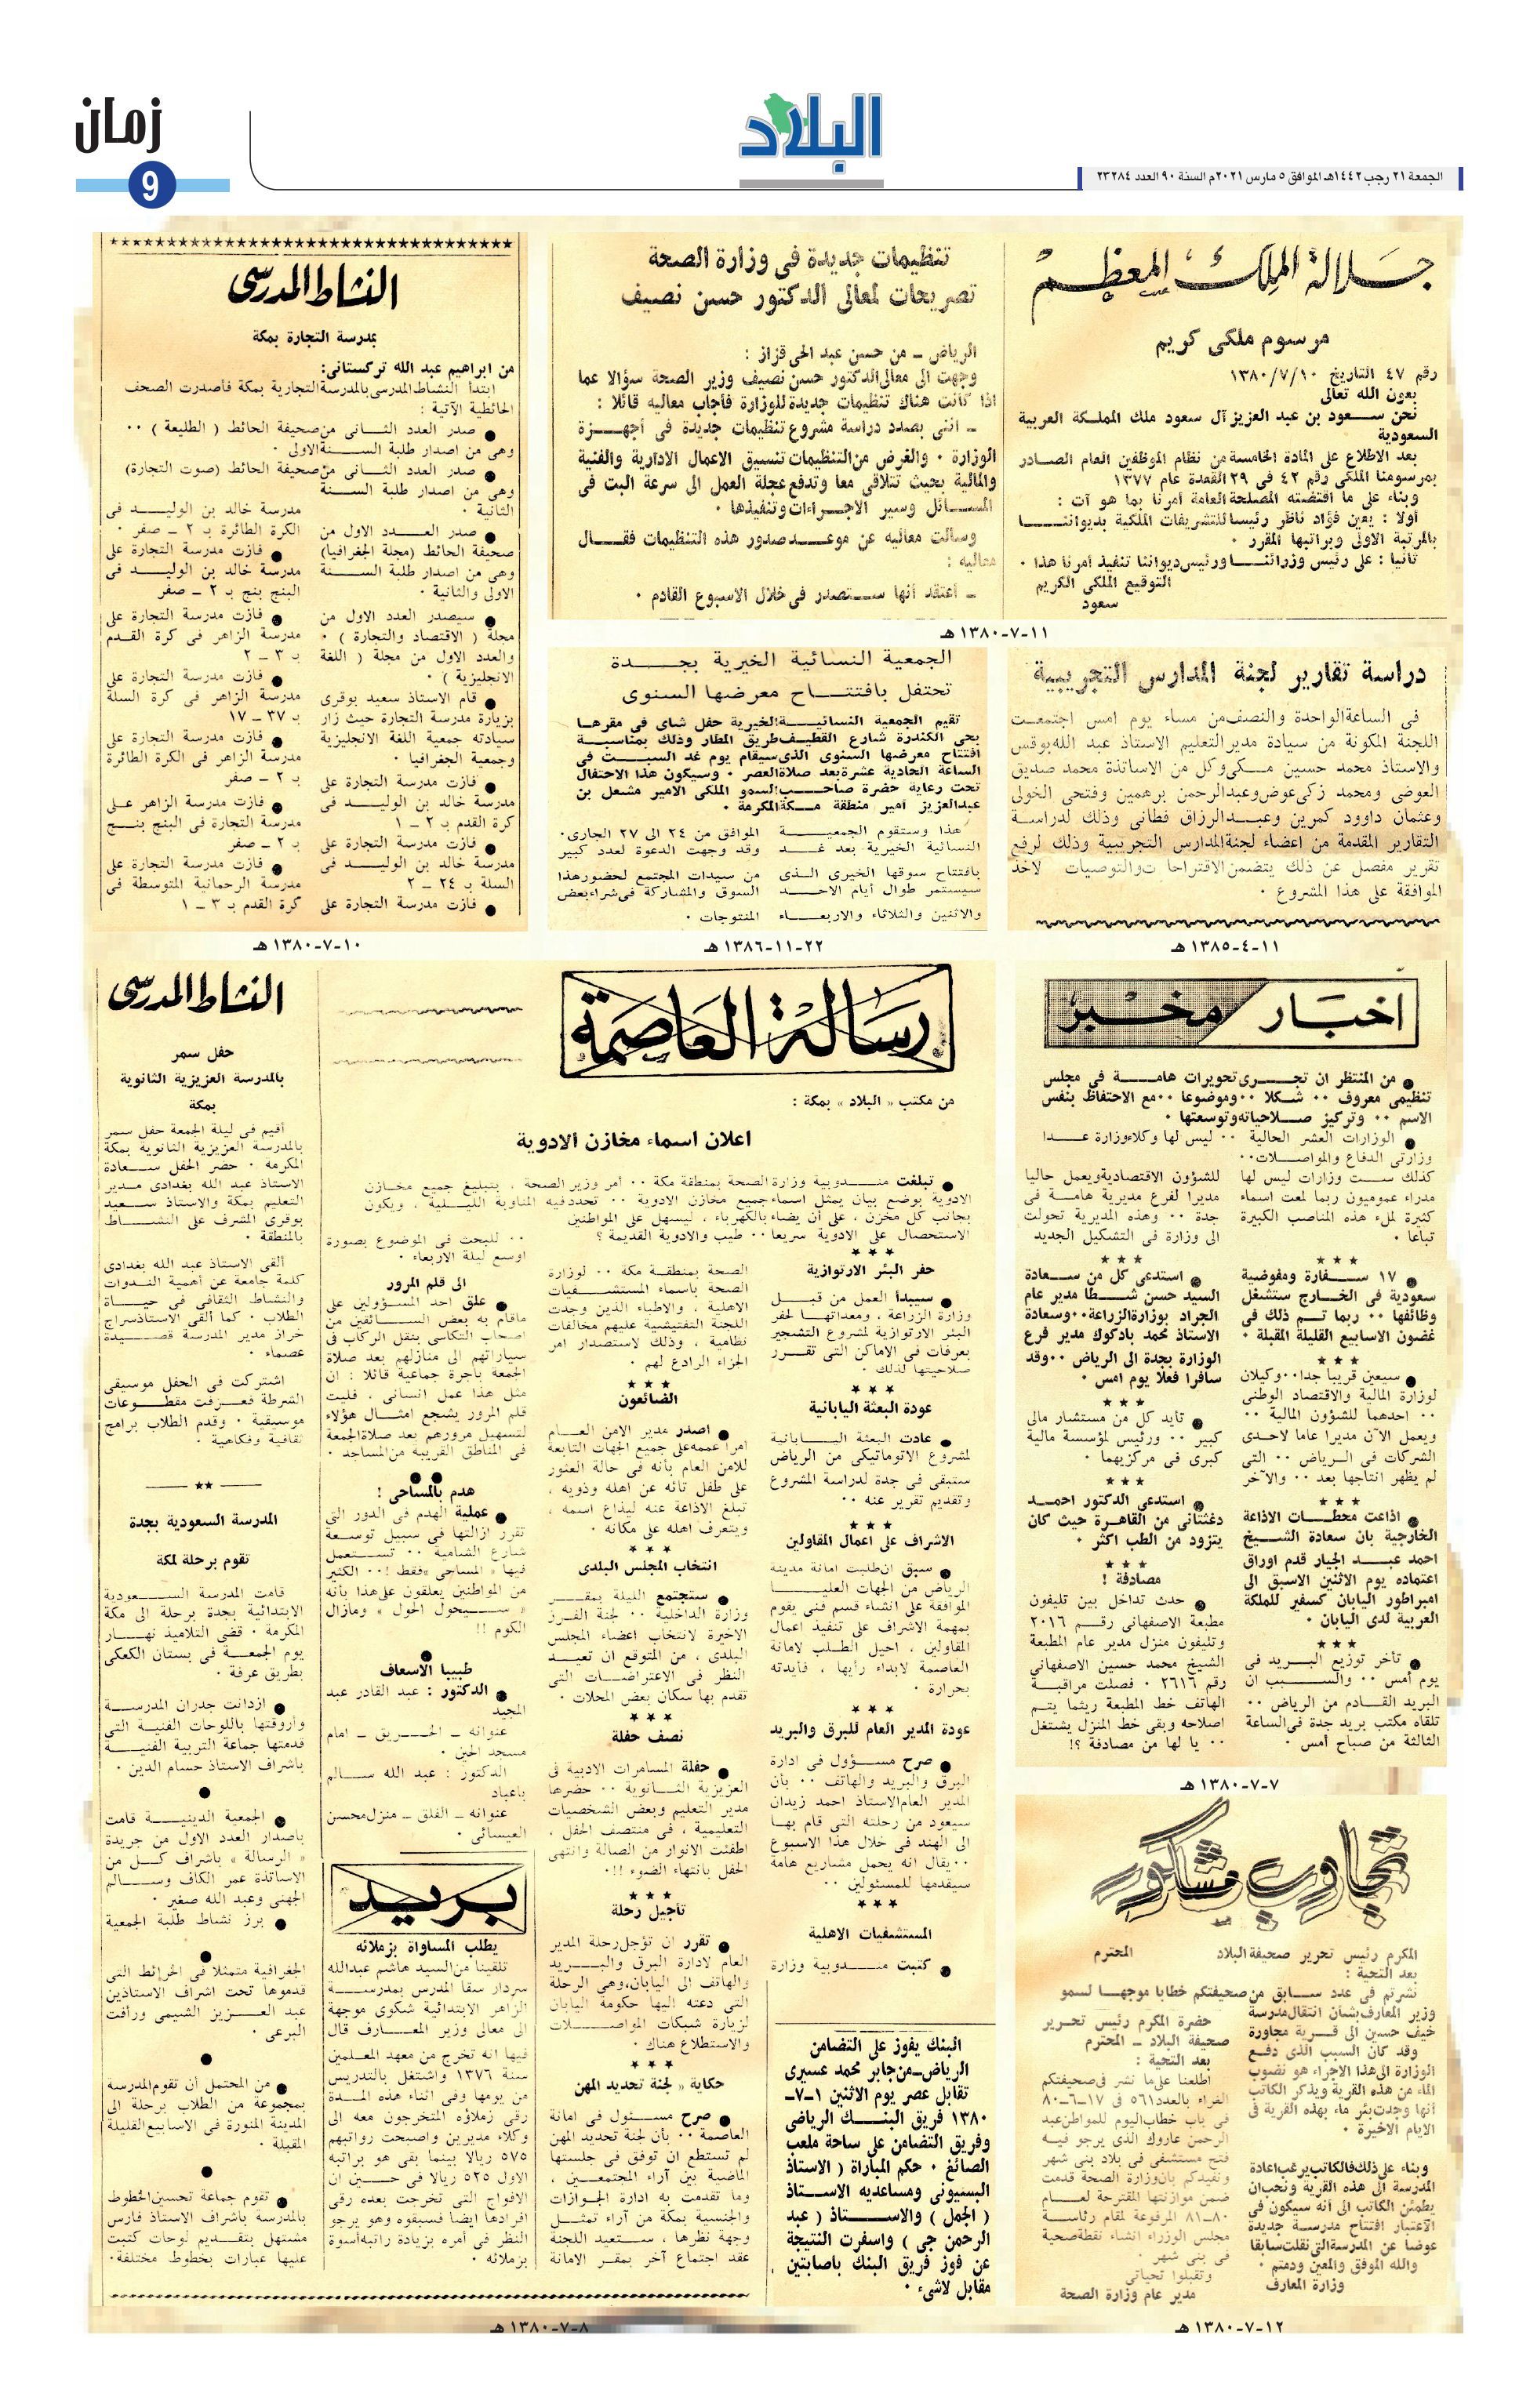 البلاد
زمان
9
الجمعة ٢١ رجب ١٤٤٢هـ الموافق ٥ مارس ٢٠٢١م السنة ٩٠ العدد ٢٣٢٨٤
جلالة الملك المعظم
مرسوم ملكى كريم
رقم ٤٧ التاريخ ١٣٨٠/٧/١٠
بعون الله تعالى
نحن سعود بن عبد العزيز آل سعود ملك المملكة العربية
السعودية
بعد الاطلاع على المادة الخامسة من نظام الموظفين العام الصادر
بمرسومنا الملكى رقم ٤٢ فى ٢٩ القعدة عام ١٣٧٧
وبناء على ما اقتضته المصلحة العامة أمرنا بما هو آت :
أولا : يعين فؤاد ناظر رئيسا للتشريفات الملكية بديواننا
بالمرتبة الاولى وبراتبها المقرر ٠
ثانيا : على رئيس وزرائنا ورئيس ديواننا تنفيذ أمرنا هذا ٠
التوقيع الملكى الكريم
سعود
تنظيمات جديدة فى وزارة الصحة
تصريحات لمعالى الدكتور حسن نصيف
الرياض ــ من حسن عبد الحى قزاز :
وجهت الى معالى الدكتور حسن نصيف وزير الصحة سؤالا عما
اذا كانت هناك تنظيمات جديدة للوزارة فأجاب معاليه قائلا :
ــ اننى بصدد دراسة مشروع تنظيمات جديدة فى أجهزة
الوزارة ٠ والغرض من التنظيمات تنسيق الاعمال الادارية والفنية
والمالية بحيث تتلاقى معا وتدفع عجلة العمل الى سرعة البت فى
المسائل وسير الاجراءات وتنفيذها ٠
وسألت معاليه عن موعد صدور هذه التنظيمات فقال
معاليه :
ــ أعتقد أنها ستصدر فى خلال الاسبوع القادم ٠
١١-٧-١٣٨٠ هـ
النشاط المدرسى
بمدرسة التجارة بمكة
من ابراهيم عبد الله تركستانى:
ابتدأ النشاط المدرسى بالمدرسة التجارية بمكة فأصدرت الصحف
الحائطية الآتية :
● صدر العدد الثانى من صحيفة الحائط ( الطليعة ) ٠٠
وهى من اصدار طلبة السنة الاولى ٠
● صدر العدد الثانى من صحيفة الحائط (صوت التجارة)
وهى من اصدار طلبة السنة
الثانية ٠
● صدر العدد الاول من
صحيفة الحائط (مجلة الجغرافيا)
وهى من اصدار طلبة السنة
الاولى والثانية ٠
● سيصدر العدد الاول من
مجلة ( الاقتصاد والتجارة ) ٠
والعدد الاول من مجلة ( اللغة
الانجليزية ) ٠
● قام الاستاذ سعيد بوقرى
بزيارة مدرسة التجارة حيث زار
سيادته جمعية اللغة الانجليزية
وجمعية الجغرافيا ٠
● فازت مدرسة التجارة على
مدرسة خالد بن الوليد فى
كرة القدم بـ ٢ ــ ١
● فازت مدرسة التجارة على
مدرسة خالد بن الوليد فى
السلة بـ ٢٤ ــ ٢
● فازت مدرسة التجارة على
مدرسة خالد بن الوليد فى
الكرة الطائرة بـ ٢ ــ صفر ٠
● فازت مدرسة التجارة على
مدرسة خالد بن الوليد فى
البنج بنج بـ ٢ ــ صفر
● فازت مدرسة التجارة على
مدرسة الزاهر فى كرة القدم
بـ ٣ ــ ٢
● فازت مدرسة التجارة على
مدرسة الزاهر فى كرة السلة
بـ ٣٧ ــ ١٧
● فازت مدرسة التجارة على
مدرسة الزاهر فى الكرة الطائرة
بـ ٢ ــ صفر
● فازت مدرسة الزاهر على
مدرسة التجارة فى البنج بنج
بـ ٢ ــ صفر
● فازت مدرسة التجارة على
مدرسة الرحمانية المتوسطة فى
كرة القدم بـ ٣ ــ ١
١٠-٧-١٣٨٠ هـ
دراسة تقارير لجنة المدارس التجريبية
فى الساعة الواحدة والنصف من مساء يوم امس اجتمعت
اللجنة المكونة من سيادة مدير التعليم الاستاذ عبد الله بوقس
والاستاذ محمد حسين مكى وكل من الاساتذة محمد صديق
العوضى ومحمد زكى عوض وعبد الرحمن برهمين وفتحى الخولى
وعثمان داوود كمرين وعبد الرزاق فطانى وذلك لدراسة
التقارير المقدمة من اعضاء لجنة المدارس التجريبية وذلك لرفع
تقرير مفصل عن ذلك يتضمن الاقتراحات والتوصيات لاخذ
الموافقة على هذا المشروع ٠
١١-٤-١٣٨٥ هـ
الجمعية النسائية الخيرية بجدة
تحتفل بافتتاح معرضها السنوى
تقيم الجمعية النسائية الخيرية حفل شاى فى مقرها
بحى الكندرة شارع القطيف طريق المطار وذلك بمناسبة
افتتاح معرضها السنوى الذى سيقام يوم غد السبت فى
الساعة الحادية عشرة بعد صلاة العصر ٠ وسيكون هذا الاحتفال
تحت رعاية حضرة صاحب السمو الملكى الامير مشعل بن
عبد العزيز أمير منطقة مكة المكرمة ٠
هذا وستقوم الجمعية
النسائية الخيرية بعد غد
بافتتاح سوقها الخيرى الذى
سيستمر طوال أيام الاحد
والاثنين والثلاثاء والاربعاء
الموافق من ٢٤ الى ٢٧ الجارى٠
وقد وجهت الدعوة لعدد كبير
من سيدات المجتمع لحضور هذا
السوق والمشاركة فى شراء بعض
المنتوجات ٠
٢٢-١١-١٣٨٦ هـ
اخبار مخبر
● من المنتظر ان تجرى تحويرات هامة فى مجلس
تنظيمى معروف ٠٠ شكلا ٠٠ وموضوعا ٠٠ مع الاحتفاظ بنفس
الاسم ٠٠ وتركيز صلاحياته وتوسعتها ٠
● الوزارات العشر الحالية ٠٠ ليس لها وكلاء وزارة عدا
وزارتى الدفاع والمواصلات٠٠
كذلك ست وزارات ليس لها
مدراء عموميون ربما لمعت اسماء
كثيرة لملء هذه المناصب الكبيرة
تباعا ٠
★ ★ ★
● ١٧ سفارة ومفوضية
سعودية فى الخارج ستشغل
وظائفها ٠٠ ربما تم ذلك فى
غضون الاسابيع القليلة المقبلة ٠
★ ★ ★
● سيعين قريبا جدا٠٠وكيلان
لوزارة المالية والاقتصاد الوطنى
٠٠ احدهما للشؤون المالية ٠٠
ويعمل الآن مديرا عاما لاحدى
الشركات فى الرياض ٠٠ التى
لم يظهر انتاجها بعد ٠٠ والآخر
★ ★ ★
● اذاعت محطات الاذاعة
الخارجية بان سعادة الشيخ
احمد عبد الجبار قدم اوراق
اعتماده يوم الاثنين الاسبق الى
امبراطور اليابان كسفير للملكة
العربية لدى اليابان ٠
★ ★ ★
● تأخر توزيع البريد فى
يوم أمس ٠٠ والسبب ان
البريد القادم من الرياض ٠٠
تلقاه مكتب بريد جدة فى الساعة
الثالثة من صباح أمس ٠
للشؤون الاقتصادية ويعمل حاليا
مديرا لفرع مديرية هامة فى
جدة ٠٠ وهذه المديرية تحولت
الى وزارة فى التشكيل الجديد
★ ★ ★
● استدعى كل من سعادة
السيد حسن شطا مدير عام
الجراد بوزارة الزراعة٠٠وسعادة
الاستاذ محمد بادكوك مدير فرع
الوزارة بجدة الى الرياض ٠٠وقد
سافرا فعلا يوم امس ٠
★ ★ ★
● تايد كل من مستشار مالى
كبير ٠٠ ورئيس لمؤسسة مالية
كبرى فى مركزيهما ٠
★ ★ ★
● استدعى الدكتور احمد
دغثتانى من القاهرة حيث كان
يتزود من الطب اكثر ٠
★ ★ ★
مصادفة !
● حدث تداخل بين تليفون
مطبعة الاصفهانى رقم ٢٠١٦
وتليفون منزل مدير عام المطبعة
الشيخ محمد حسين الاصفهانى
رقم ٢٦١٦ ٠ فصلت مراقبة
الهاتف خط المطبعة ريثما يتم
اصلاحه وبقى خط المنزل يشتغل
٠٠ يا لها من مصادفة ؟!
٧-٧-١٣٨٠ هـ
رسالة العاصمة
من مكتب « البلاد » بمكة :
اعلان اسماء مخازن الادوية
● تبلغت مندوبية وزارة الصحة بمنطقة مكة ٠٠ أمر وزير الصحة ، بتبليغ جميع مخازن
الادوية بوضع بيان يمثل اسماء جميع مخازن الادوية ٠٠ تحدد فيه المناوبة الليلية ، ويكون
بجانب كل مخزن ، على أن يضاء بالكهرباء ، ليسهل على المواطنين
الاستحصال على الادوية سريعا ٠٠ طيب والادوية القديمة ؟
★ ★ ★
حفر البئر الارتوازية
● سيبدأ العمل من قبل
وزارة الزراعة ، ومعداتها لحفر
البئر الارتوازية لمشروع التشجير
بعرفات فى الاماكن التى تقرر
صلاحيتها لذلك ٠
★ ★ ★
عودة البعثة اليابانية
● عادت البعثة اليابانية
لمشروع الاتوماتيكى من الرياض
ستبقى فى جدة لدراسة المشروع
وتقديم تقرير عنه ٠٠
★ ★ ★
الاشراف على اعمال المقاولين
● سبق ان طلبت امانة مدينة
الرياض من الجهات العليا
الموافقة على انشاء قسم فنى يقوم
بمهمة الاشراف على تنفيذ اعمال
المقاولين ، احيل الطلب لامانة
العاصمة لابداء رأيها ، فأيدته
بحرارة ٠
★ ★ ★
عودة المدير العام للبرق والبريد
● صرح مسؤول فى ادارة
البرق والبريد والهاتف ٠٠ بأن
المدير العام الاستاذ احمد زيدان
سيعود من رحلته التى قام بها
الى الهند فى خلال هذا الاسبوع
٠٠يقال انه يحمل مشاريع هامة
سيقدمها للمسئولين ٠٠
★ ★ ★
المستشفيات الاهلية
● كتبت مندوبية وزارة
الصحة بمنطقة مكة ٠٠ لوزارة
الصحة باسماء المستشفيات
الاهلية ، والاطباء الذين وجدت
اللجنة التفتيشية عليهم مخالفات
نظامية ، وذلك لاستصدار امر
الجزاء الرادع لهم ٠
★ ★ ★
الضائعون
● اصدر مدير الامن العام
امرا عممه على جميع الجهات التابعة
للامن العام بأنه فى حالة العثور
على طفل تائه عن اهله وذويه ،
تبلغ الاذاعة عنه ليذاع اسمه ،
ويتعرف اهله على مكانه ٠
★ ★ ★
انتخاب المجلس البلدى
● ستجتمع الليلة بمقر
وزارة الداخلية ٠٠ لجنة الفرز
الاخيرة لانتخاب اعضاء المجلس
البلدى ، من المتوقع ان تعيد
النظر فى الاعتراضات التى
تقدم بها سكان بعض المحلات ٠
★ ★ ★
نصف حفلة
● حفلة المسامرات الادبية فى
العزيزية الثانوية ٠٠ حضرها
مدير التعليم وبعض الشخصيات
التعليمية ، فى منتصف الحفل ،
اطفئت الانوار من الصالة وانتهى
الحفل بانتهاء الضوء !!٠
★ ★ ★
تأجيل رحلة
● تقرر ان تؤجل رحلة المدير
العام لادارة البرق والبريد
والهاتف الى اليابان، وهى الرحلة
التى دعته اليها حكومة اليابان
لزيارة شبكات المواصلات
والاستطلاع هناك ٠
★ ★ ★
حكاية « لجنة تحديد المهن
● صرح مسئول فى امانة
العاصمة ٠٠ بأن لجنة تحديد المهن
لم تستطع ان توفق فى جلستها
الماضية بين آراء المجتمعين ،
وما تقدمت به ادارة الجوازات
والجنسية بمكة من آراء تمثل
وجهة نظرها ، ستعيد اللجنة
عقد اجتماع آخر بمقر الامانة
٠٠ للبحث فى الموضوع بصورة
اوسع ليلة الاربعاء ٠
الى قلم المرور
● علق احد المسؤولين على
ماقام به بعض السائقين من
اصحاب التكاسى بنقل الركاب فى
سياراتهم الى منازلهم بعد صلاة
الجمعة باجرة جماعية قائلا : ان
مثل هذا عمل انسانى ، فليت
قلم المرور يشجع امثال هؤلاء
لتسهيل مرورهم بعد صلاة الجمعة
فى المناطق القريبة من المساجد ٠
هدم بالمساحى !
● عملية الهدم فى الدور التى
تقرر ازالتها فى سبيل توسعة
شارع الشامية ٠٠ تستعمل
فيها « المساحى » فقط !٠٠ الكثير
من المواطنين يعلقون على هذا بأنه
« سيحول الحول » ومازال
الكوم !!
طبيبا الاسعاف
● الدكتور : عبد القادر عبد
المجيد
عنوانه ــ الحريق ــ امام
مسجد الجن ٠
الدكتور : عبد الله سالم
باعباد
عنوانه ــ الفلق ــ منزل محسن
العيسائى ٠
بريد
يطلب المساواة بزملائه
تلقينا من السيد هاشم عبد الله
سردار سقا المدرس بمدرسة
الزاهر الابتدائية شكوى موجهة
الى معالى وزير المعارف قال
فيها انه تخرج من معهد المعلمين
سنة ١٣٧٦ واشتغل بالتدريس
من يومها وفى اثناء هذه المدة
رقى زملاؤه المتخرجون معه الى
وكلاء مديرين واصبحت رواتبهم
٥٧٥ ريالا بينما بقى هو براتبه
الاول ٥٢٥ ريالا فى حين ان
الافواج التى تخرجت بعده رقى
افرادها ايضا فسبقوه وهو يرجو
النظر فى أمره بزيادة راتبه أسوة
بزملائه ٠
البنك يفوز على التضامن
الرياض ــ من جابر محمد عسيرى
تقابل عصر يوم الاثنين ١-٧-
١٣٨٠ فريق البنك الرياضى
وفريق التضامن على ساحة ملعب
الصائغ ٠ حكم المباراة ( الاستاذ
البسيونى ومساعديه الاستاذ
( الجمل ) والاستاذ ( عبد
الرحمن جى ) واسفرت النتيجة
عن فوز فريق البنك باصابتين
مقابل لاشىء ٠
النشاط المدرسى
حفل سمر
بالمدرسة العزيزية الثانوية
بمكة
أقيم فى ليلة الجمعة حفل سمر
بالمدرسة العزيزية الثانوية بمكة
المكرمة ٠ حضر الحفل سعادة
الاستاذ عبد الله بغدادى مدير
التعليم بمكة والاستاذ سعيد
بوقرى المشرف على النشاط
بالمنطقة ٠
ألقى الاستاذ عبد الله بغدادى
كلمة جامعة عن أهمية الندوات
والنشاط الثقافى فى حياة
الطلاب ٠ كما ألقى الاستاذ سراج
خراز مدير المدرسة قصيدة
عصماء ٠
اشتركت فى الحفل موسيقى
الشرطة فعزفت مقطوعات
موسيقية ٠ وقدم الطلاب برامج
ثقافية وفكاهية ٠
★★
المدرسة السعودية بجدة
تقوم برحلة لمكة
قامت المدرسة السعودية
الابتدائية بجدة برحلة الى مكة
المكرمة ٠ قضى التلاميذ نهار
يوم الجمعة فى بستان الكعكى
بطريق عرفة ٠
● ازدانت جدران المدرسة
واروقتها باللوحات الفنية التى
قدمتها جماعة التربية الفنية
باشراف الاستاذ حسام الدين ٠
● الجمعية الدينية قامت
باصدار العدد الاول من جريدة
« الرسالة » باشراف كل من
الاساتذة عمر الكاف وسالم
الجهنى وعبد الله صغير ٠
● برز نشاط طلبة الجمعية
الجغرافية متمثلا فى الخرائط التى
قدموها تحت اشراف الاستاذين
عبد العزيز الشيمى ورأفت
البرعى ٠
● من المحتمل أن تقوم المدرسة
بمجموعة من الطلاب برحلة الى
المدينة المنورة فى الاسابيع القليلة
المقبلة ٠
● تقوم جماعة تحسين الخطوط
بالمدرسة باشراف الاستاذ فارس
مشتهل بتقديم لوحات كتبت
عليها عبارات بخطوط مختلفة٠
٨-٧-١٣٨٠ هـ
تجاوب مشكور
المكرم رئيس تحرير صحيفة البلاد المحترم
بعد التحية :
نشرتم فى عدد سابق من صحيفتكم خطابا موجها لسمو
وزير المعارف بشأن انتقال مدرسة
خيف حسين الى قرية مجاورة
وقد كان السبب الذى دفع
الوزارة الى هذا الاجراء هو نضوب
الماء من هذه القرية ويذكر الكاتب
أنها وجدت بئر ماء بهذه القرية فى
الايام الاخيرة ٠
وبناء على ذلك فالكاتب يرغب اعادة
المدرسة الى هذه القرية ونحب ان
يطمئن الكاتب الى أنه سيكون فى
الاعتبار افتتاح مدرسة جديدة
عوضا عن المدرسة التى نقلت سابقا
والله الموفق والمعين ودمتم ٠
وزارة المعارف
حضرة المكرم رئيس تحرير
صحيفة البلاد ــ المحترم
بعد التحية :
اطلعنا على ما نشر فى صحيفتكم
الغراء بالعدد ٥٦١ فى ١٧-٦-٨٠
فى باب خطاب اليوم للمواطن عبد
الرحمن عاروك الذى يرجو فيه
فتح مستشفى فى بلاد بنى شهر
ونفيدكم بان وزارة الصحة قدمت
ضمن موازنتها المقترحة لعام
٨٠ــ٨١ المرفوعة لمقام رئاسة
مجلس الوزراء انشاء نقطة صحية
فى بنى شهر ٠
وتقبلوا تحياتى
مدير عام وزارة الصحة
١٢-٧-١٣٨٠ هـ